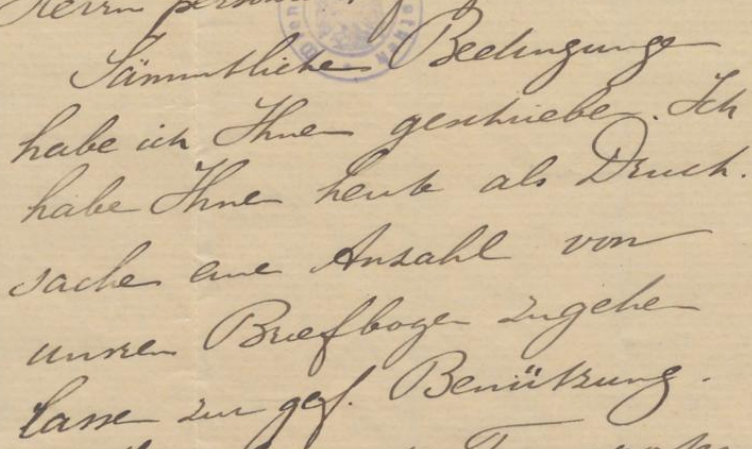 Herrn
Sämmtliche Bedingungen
habe ich Ihnen geschrieben. Ich
habe Ihnen heute als Druck-
sache eine Anzahl von
unsren Briefbogen zugehen
lassen zur gef. Benützung.